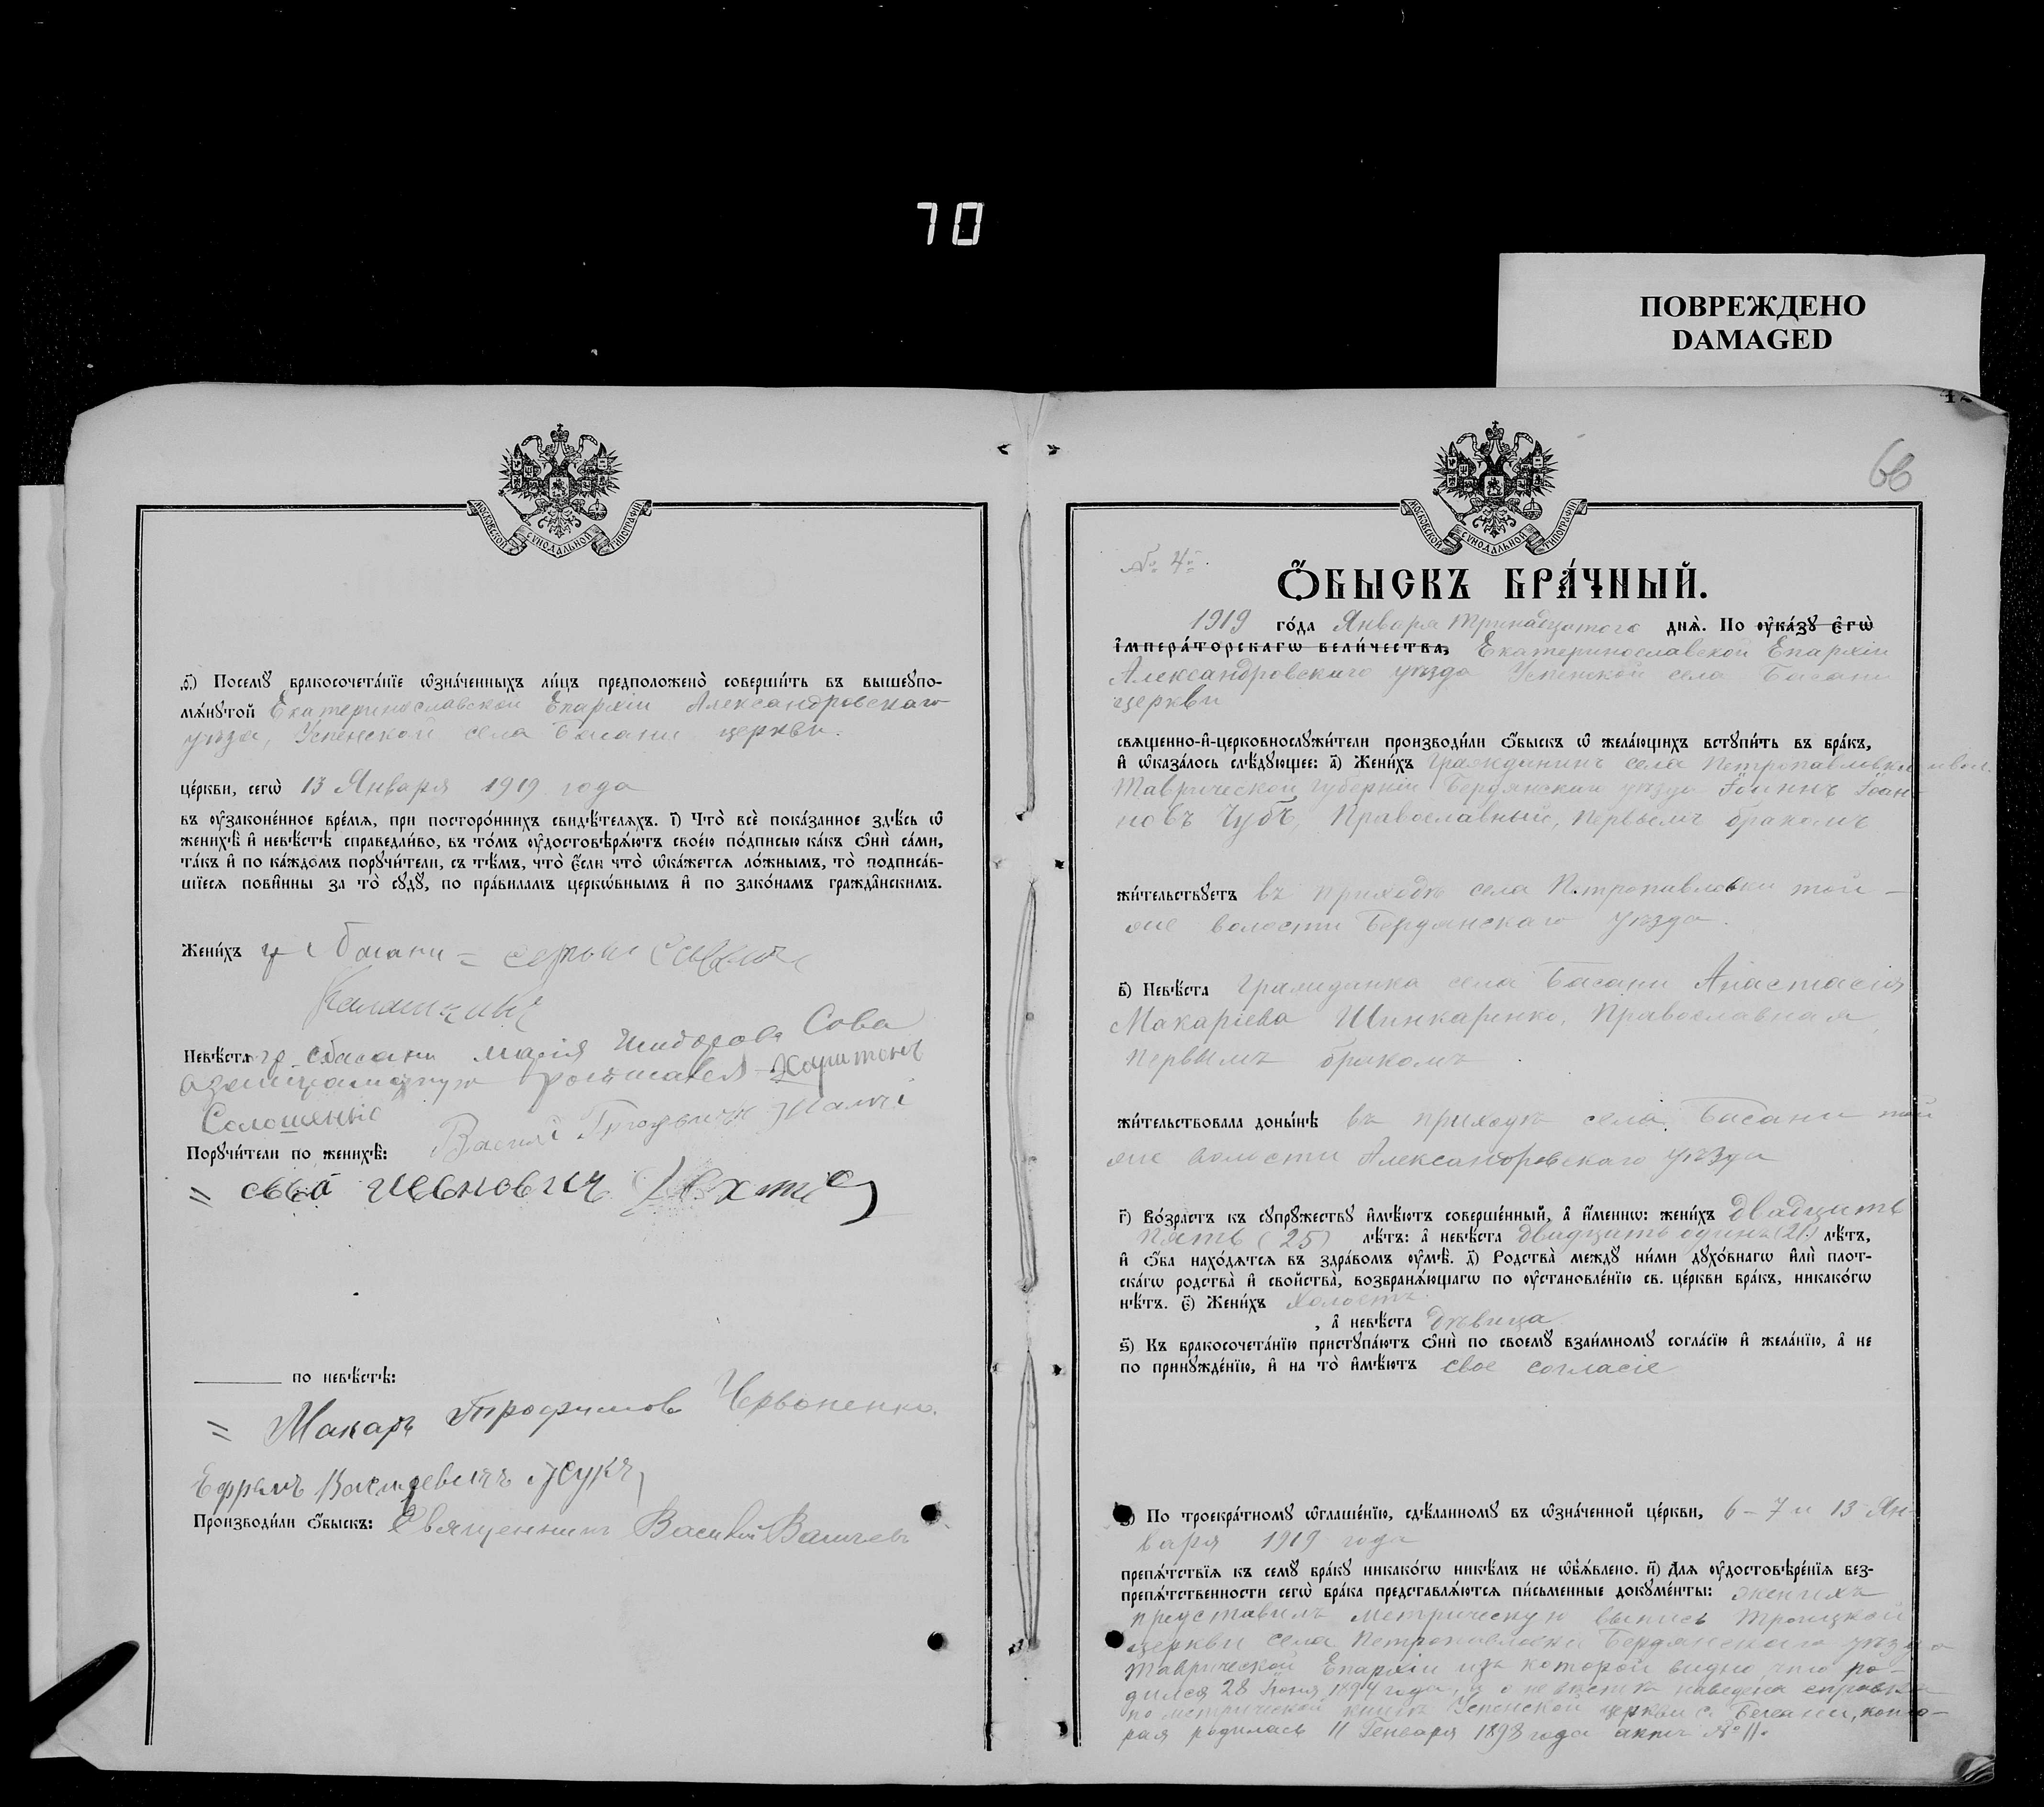 70
ПОВРЕЖДЕНО
DAMAGED
МОСКОВСКОЙ СѴНОДАЛЬНОЙ ТИПОГРАФІИ
Посемꙋ̀ бракосочета́нїе ѡ҆зна́ченныхъ ли́цъ предположено̀ соверши́ть въ вышеꙋпо-
мѧ́нꙋтой Екатеринославской Епархіи Александровскаго
уѣзда, Успенской села Басани церкви.
це́ркви, сегѡ̀ 13 Января 1919 года
въ ᲂу҆зако́ненное вре́мѧ, при посторо́ннихъ свидѣ́телѧхъ. і҃) Что̀ всѐ пока́занное здѣ́сь ѡ҆
женихѣ̀ и҆ невѣ́стѣ справедли́во, въ то́мъ ᲂу҆достовѣрѧ́ютъ свое́ю по́дписью ка́къ ѻ҆нѝ са́ми,
та́къ и҆ по ка́ждомъ порꙋчи́тели, съ тѣ́мъ, что̀ є҆́сли что̀ ѡ҆ка́жетсѧ ло́жнымъ, то̀ подписа́в-
шїесѧ пови́нны за то̀ сꙋдꙋ̀, по пра́виламъ церкѡ́внымъ и҆ по зако́намъ гражда̂нскимъ.
Жени́хъ Басани =
Невѣ́ста Басани Марія Сова
Харитонъ
Порꙋчи́тели по женихѣ̀:
=
по невѣ́стѣ:
= Макаръ Трофимовъ Червоненко.
Ефремъ Васильевичъ Жукъ
Производи́ли ѻ҆́быскъ: Священникъ Василій
66
МОСКОВСКОЙ СѴНОДАЛЬНОЙ ТИПОГРАФІИ
№ 4
Ѻ҆́БЫСКЪ БРА́ЧНЫЙ.
1919 го́да Января тринадцатого днѧ̀. По ᲂу҆ка́зꙋ є҆гѡ̀
і҆мпера́торскагѡ вели́чества, Екатеринославской Епархіи
Александровскаго уѣзда Успенской села Басани
церкви
свѧще́нно-и҆-церковнослꙋжи́тели производи́ли ѻ҆́быскъ ѡ҆ жела́ющихъ встꙋпи́ть въ бра́къ,
и҆ ѡ҆каза́лось слѣ́дꙋющее: а҃) Жени́хъ гражданинъ села Петропавловки
Таврической губерніи Бердянскаго уѣзда Іоаннъ Іоан-
новъ Чубъ, Православный, первымъ бракомъ
жи́тельствꙋетъ въ приходѣ села Петропавловки той-
же волости Бердянскаго уѣзда.
в҃) Невѣ́ста гражданка села Басани Анастасія
Макаріева Шинкаренко, Православная,
первымъ бракомъ.
жи́тельствовала доны́нѣ въ приходѣ села Басани той
же волости Александровскаго уѣзда
г҃) Во́зрастъ къ сꙋпрꙋ́жествꙋ и҆мѣ́ютъ соверше́нный, а҆ и҆́меннѡ: жени́хъ двадцать
пять (25) лѣ́тъ: а҆ невѣ́ста двадцать одинъ (21) лѣ́тъ,
и҆ ѻ҆́ба нахо́дѧтсѧ въ здра́вомъ ᲂу҆мѣ̀. д҃) Родства̀ междꙋ̀ ни́ми дꙋхо́внагѡ и҆лѝ плот-
ска́гѡ родства̀ и҆ сво́йства̀, возбранѧ́ющагѡ по ᲂу҆становле́нїю св. це́ркви бра́къ, никако́гѡ
нѣ́тъ. є҃) Жени́хъ холостъ
, а҆ невѣ́ста дѣвица
ѕ҃) Къ бракосочета́нїю пристꙋпа́ютъ ѻ҆нѝ по своемꙋ̀ взаи́мномꙋ согла́сїю и҆ жела́нїю, а҆ не
по принꙋжде́нїю, и҆ на то̀ и҆мѣ́ютъ свое согласіе
По троекра́тномꙋ ѡ҆глаше́нїю, сдѣ́ланномꙋ въ ѡ҆зна́ченной це́ркви, 6 - 7 и 13 Ян-
варя 1919 года
препѧ́тствїѧ къ семꙋ̀ бра́кꙋ никако́гѡ никѣ́мъ не ѡ҆б̾ѧ́влено. и҃) Длѧ ᲂу҆достовѣре́нїѧ без-
препѧ́тственности сегѡ̀ бра́ка представлѧ́ютсѧ пи́сьменные докꙋме́нты: женихъ
представилъ метрическую выпись Троицкой
церкви села Петропавловки Бердянскаго уѣзда
Таврической Епархіи изъ которой видно, что ро-
дился 28 Іюня 1894 года, а о невѣстѣ наведена справка
по метрической книгѣ Успенской церкви с. Басани, кото-
рая родилась 11 Генваря 1898 года актъ № 11.